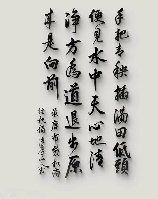 手把青秧插滿田低頭
便見水中天心地清
淨方為道退步原
来是向前